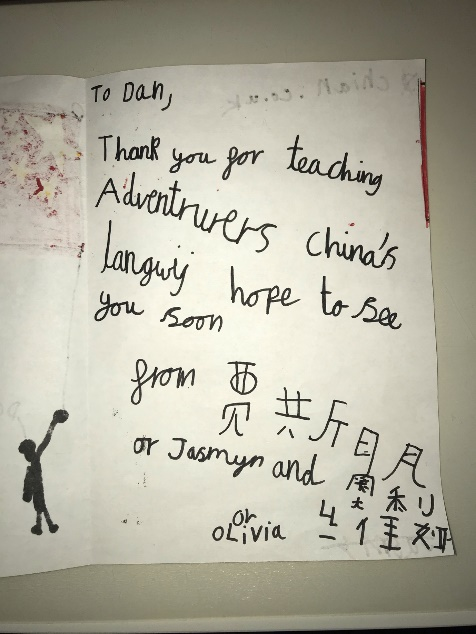 To Dan,
Thank you for teaching
Adventrurers China's
langwij hope to see
you soon
from
or Jasmyn and
or
OLivia